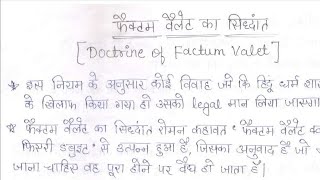 फैक्टम वैलेट का सिध्दांत
[Doctrine of Factum Valet]
इस नियम के अनुसार कोई विवाह जो कि हिंदू धर्म शा
के खिलाफ किया गया हो उसको legal मान लिया जाएगा
फैक्टम वैलेट का सिध्दांत रोमन कहावत 'फैक्टम वैलेट क्व
फिसरी डबुइट' से उत्पन्न हुआ है, जिसका अनुवाद है जो
जाना चाहिए वह पूरा होने पर वैध हो जाता है।